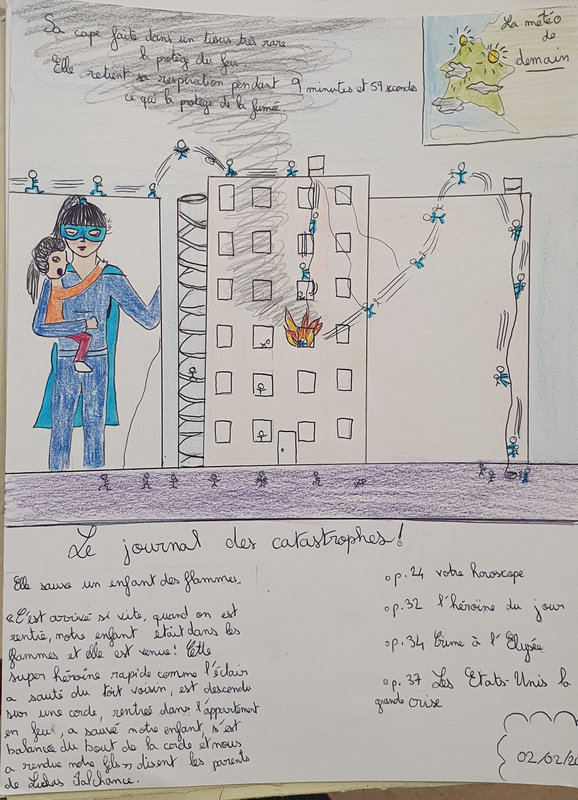 Sa cape faite dans un tissus très rare
la protège du feu
Elle retient sa respiration pendant 9 minutes et 59 secondes
ce qui la protège de la fumée
La météo
de
demain
Le journal des catastrophes !
Elle sauve un enfant des flammes.
« C'est arrivé si vite, quand on est
rentré, notre enfant était dans les
flammes et elle est venue ! Cette
super héroïne rapide comme l'éclair
a sauté du toit voisin, est descendu
sur une corde, rentrée dans l'appartement
en feu, a sauvé notre enfant, s'est
balancée du bout de la corde et nous
a rendue notre fils » disent les parents
de Lukas
o p.24 votre horoscope
o p.32 l'héroïne du jour
o p.34 Crime à l'Elysée
o p.37 Les Etats-Unis la
grande crise
02/02/20